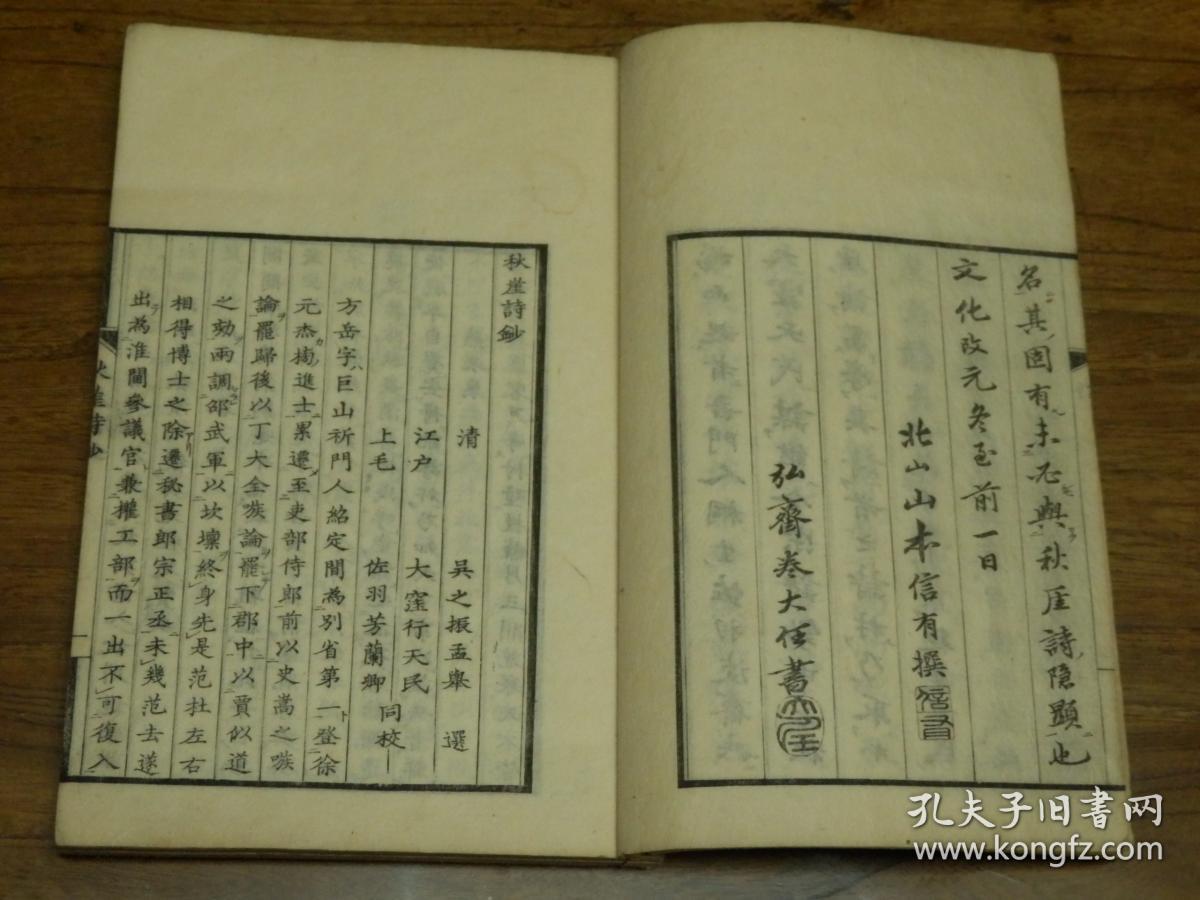 名其固有未必與秋厓詩隐顯也
文化改元冬至前一日
北山山本信有撰
弘齋卷大任書
秋崖詩鈔
清 吳之振孟舉 選
江户 大窪行天民
上毛 佐羽芳蘭卿 同校
方岳字巨山祈門人紹定間為別省第一登徐
元杰榜進士累遷至吏部侍郎前以史嵩之嗾
論罷歸後以丁大全嗾論罷下郡中以賈似道
之劾兩調邵武軍以坎壈終身先是范杜左右
相得博士之除遷秘書郎宗正丞未幾范去遂
出為淮閫參議官兼權工部而一出不可復入
孔夫子旧书网
www.kongfz.com